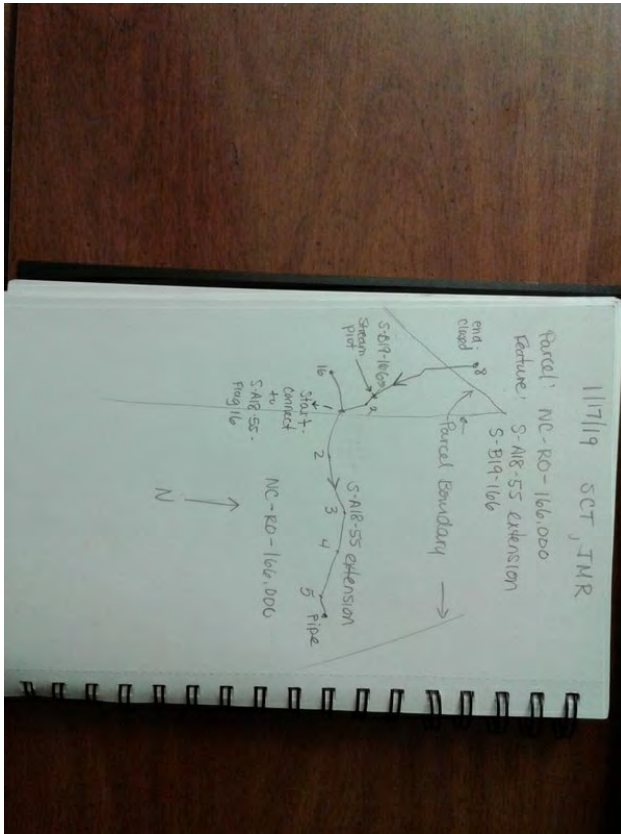 1/17/19 SCT, JMR
Parcel: NC-RO-166.000
Feature: S-A18-55 extension
S-B19-166
end:
closed
8
Parcel Boundary
S-B19-166
Stream
plot
2
16
1
Start-
connect
to
S-A18-55-
Flag 16
2
3
4
5
Pipe
S-A18-55 extension
NC-RO-166.000
N